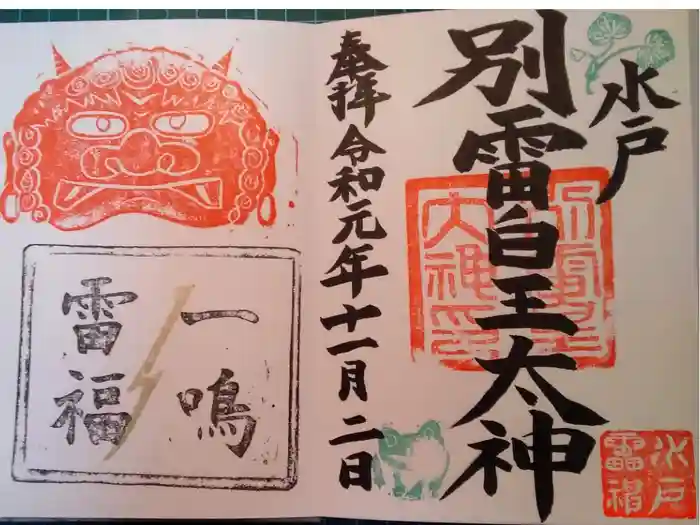 水戸
別雷皇太神
奉拝 令和元年十一月二日
一鳴
雷福
水戸
雷福